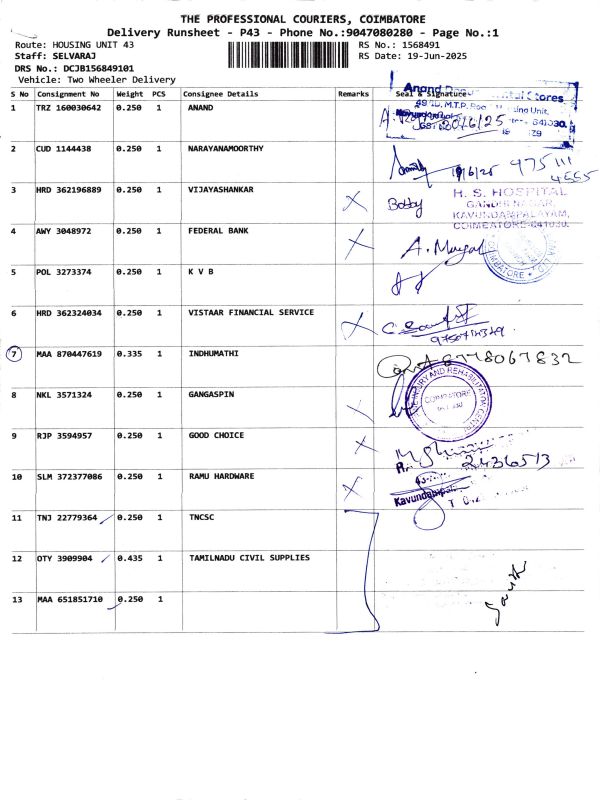 THE PROFESSIONAL COURIERS, COIMBATORE
Delivery Runsheet - P43 - Phone No.:9047080280 - Page No.:1
Route: HOUSING UNIT 43
RS No.: 1568491
Staff: SELVARAJ
RS Date: 19-Jun-2025
DRS No.: DCJB156849101
Vehicle: Two Wheeler Delivery
S No Consignment No Weight PCS Consignee Details Remarks Seal & Signature
1 TRZ 160030642 0.250 1 ANAND
2 CUD 1144438 0.250 1 NARAYANAMOORTHY 19/6/25 975111
4555
3 HRD 362196889 0.250 1 VIJAYASHANKAR X Bobby H. S. HOSPITAL
GANDHI NAGAR,
KAVUNDAMPALAYAM,
COIMBATORE-641030.
4 AWY 3048972 0.250 1 FEDERAL BANK X COIMBATORE
5 POL 3273374 0.250 1 K V B
6 HRD 362324034 0.250 1 VISTAAR FINANCIAL SERVICE X
7 MAA 870447619 0.335 1 INDHUMATHI 6778067832
8 NKL 3571324 0.250 1 GANGASPIN X INJURY AND REHABILITATION CENTRE
COIMBATORE
9 RJP 3594957 0.250 1 GOOD CHOICE X 2436513
10 SLM 372377086 0.250 1 RAMU HARDWARE X
11 TNJ 22779364 ✓ 0.250 1 TNCSC
12 OTY 3909904 ✓ 0.435 1 TAMILNADU CIVIL SUPPLIES
13 MAA 651851710 ✓ 0.250 1